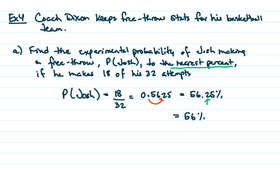 Ex4 Coach Dixon keeps free-throw stats for his basketball
team.
a) Find the experimental probability of Josh making
a free-throw, P(Josh), to the nearest percent,
if he makes 18 of his 32 attempts
P(Josh) = 18/32 = 0.5625 = 56.25%
= 56%